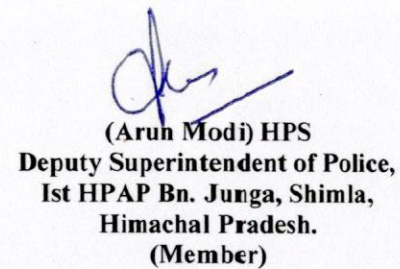 (Arun Modi) HPS
Deputy Superintendent of Police,
Ist HPAP Bn. Junga, Shimla,
Himachal Pradesh.
(Member)